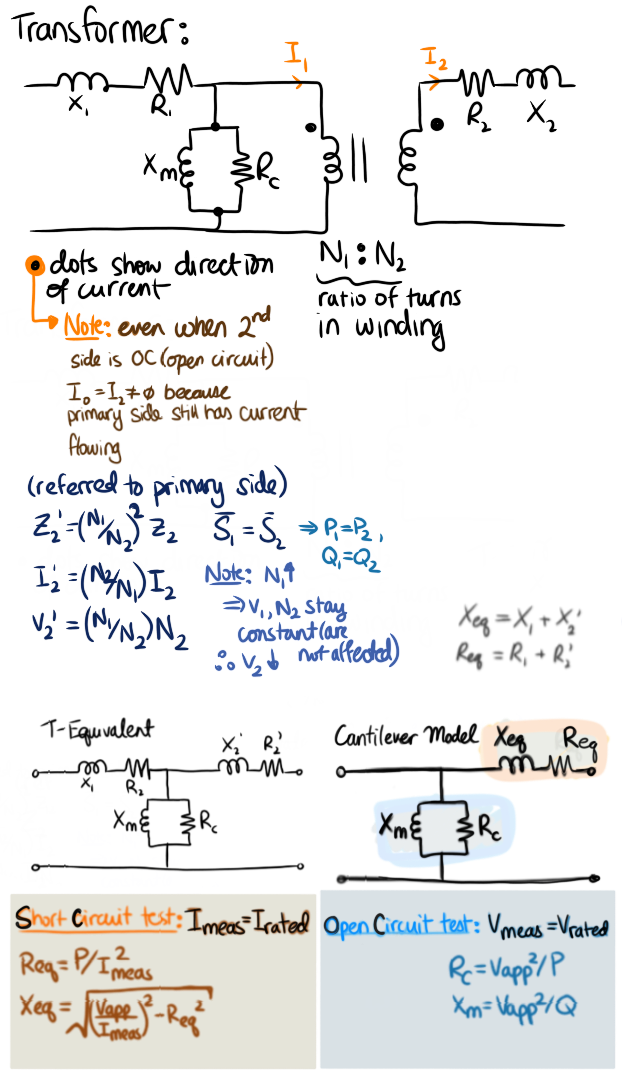 Transformer:
I₁
I₂
X₁
R₁
R₂
X₂
Xm
Rc
N₁ : N₂
ratio of turns
in winding
dots show direction
of current
Note: even when 2nd
side is OC (open circuit)
I₀ = I₂ ≠ ø because
primary side still has current
flowing
(referred to primary side)
Z₂' = (N₁/N₂)² Z₂
S̄₁ = S̄₂ ⇒ P₁ = P₂,
Q₁ = Q₂
I₂' = (N₂/N₁) I₂
V₂' = (N₁/N₂) N₂
Note: N₁↑
⇒ V₁, N₂ stay
constant (are
not affected)
∴ V₂ ↓
Xeq = X₁ + X₂'
Req = R₁ + R₂'
T-Equivalent
X₁
R₂
X₂'
R₂'
Xm
Rc
Cantilever Model
Xeq
Req
Xm
Rc
Short Circuit test: Imeas = Irated
Req = P/I²meas
Xeq = √((Vapp/Imeas)² - Req²)
Open Circuit test: Vmeas = Vrated
Rc = Vapp²/P
Xm = Vapp²/Q